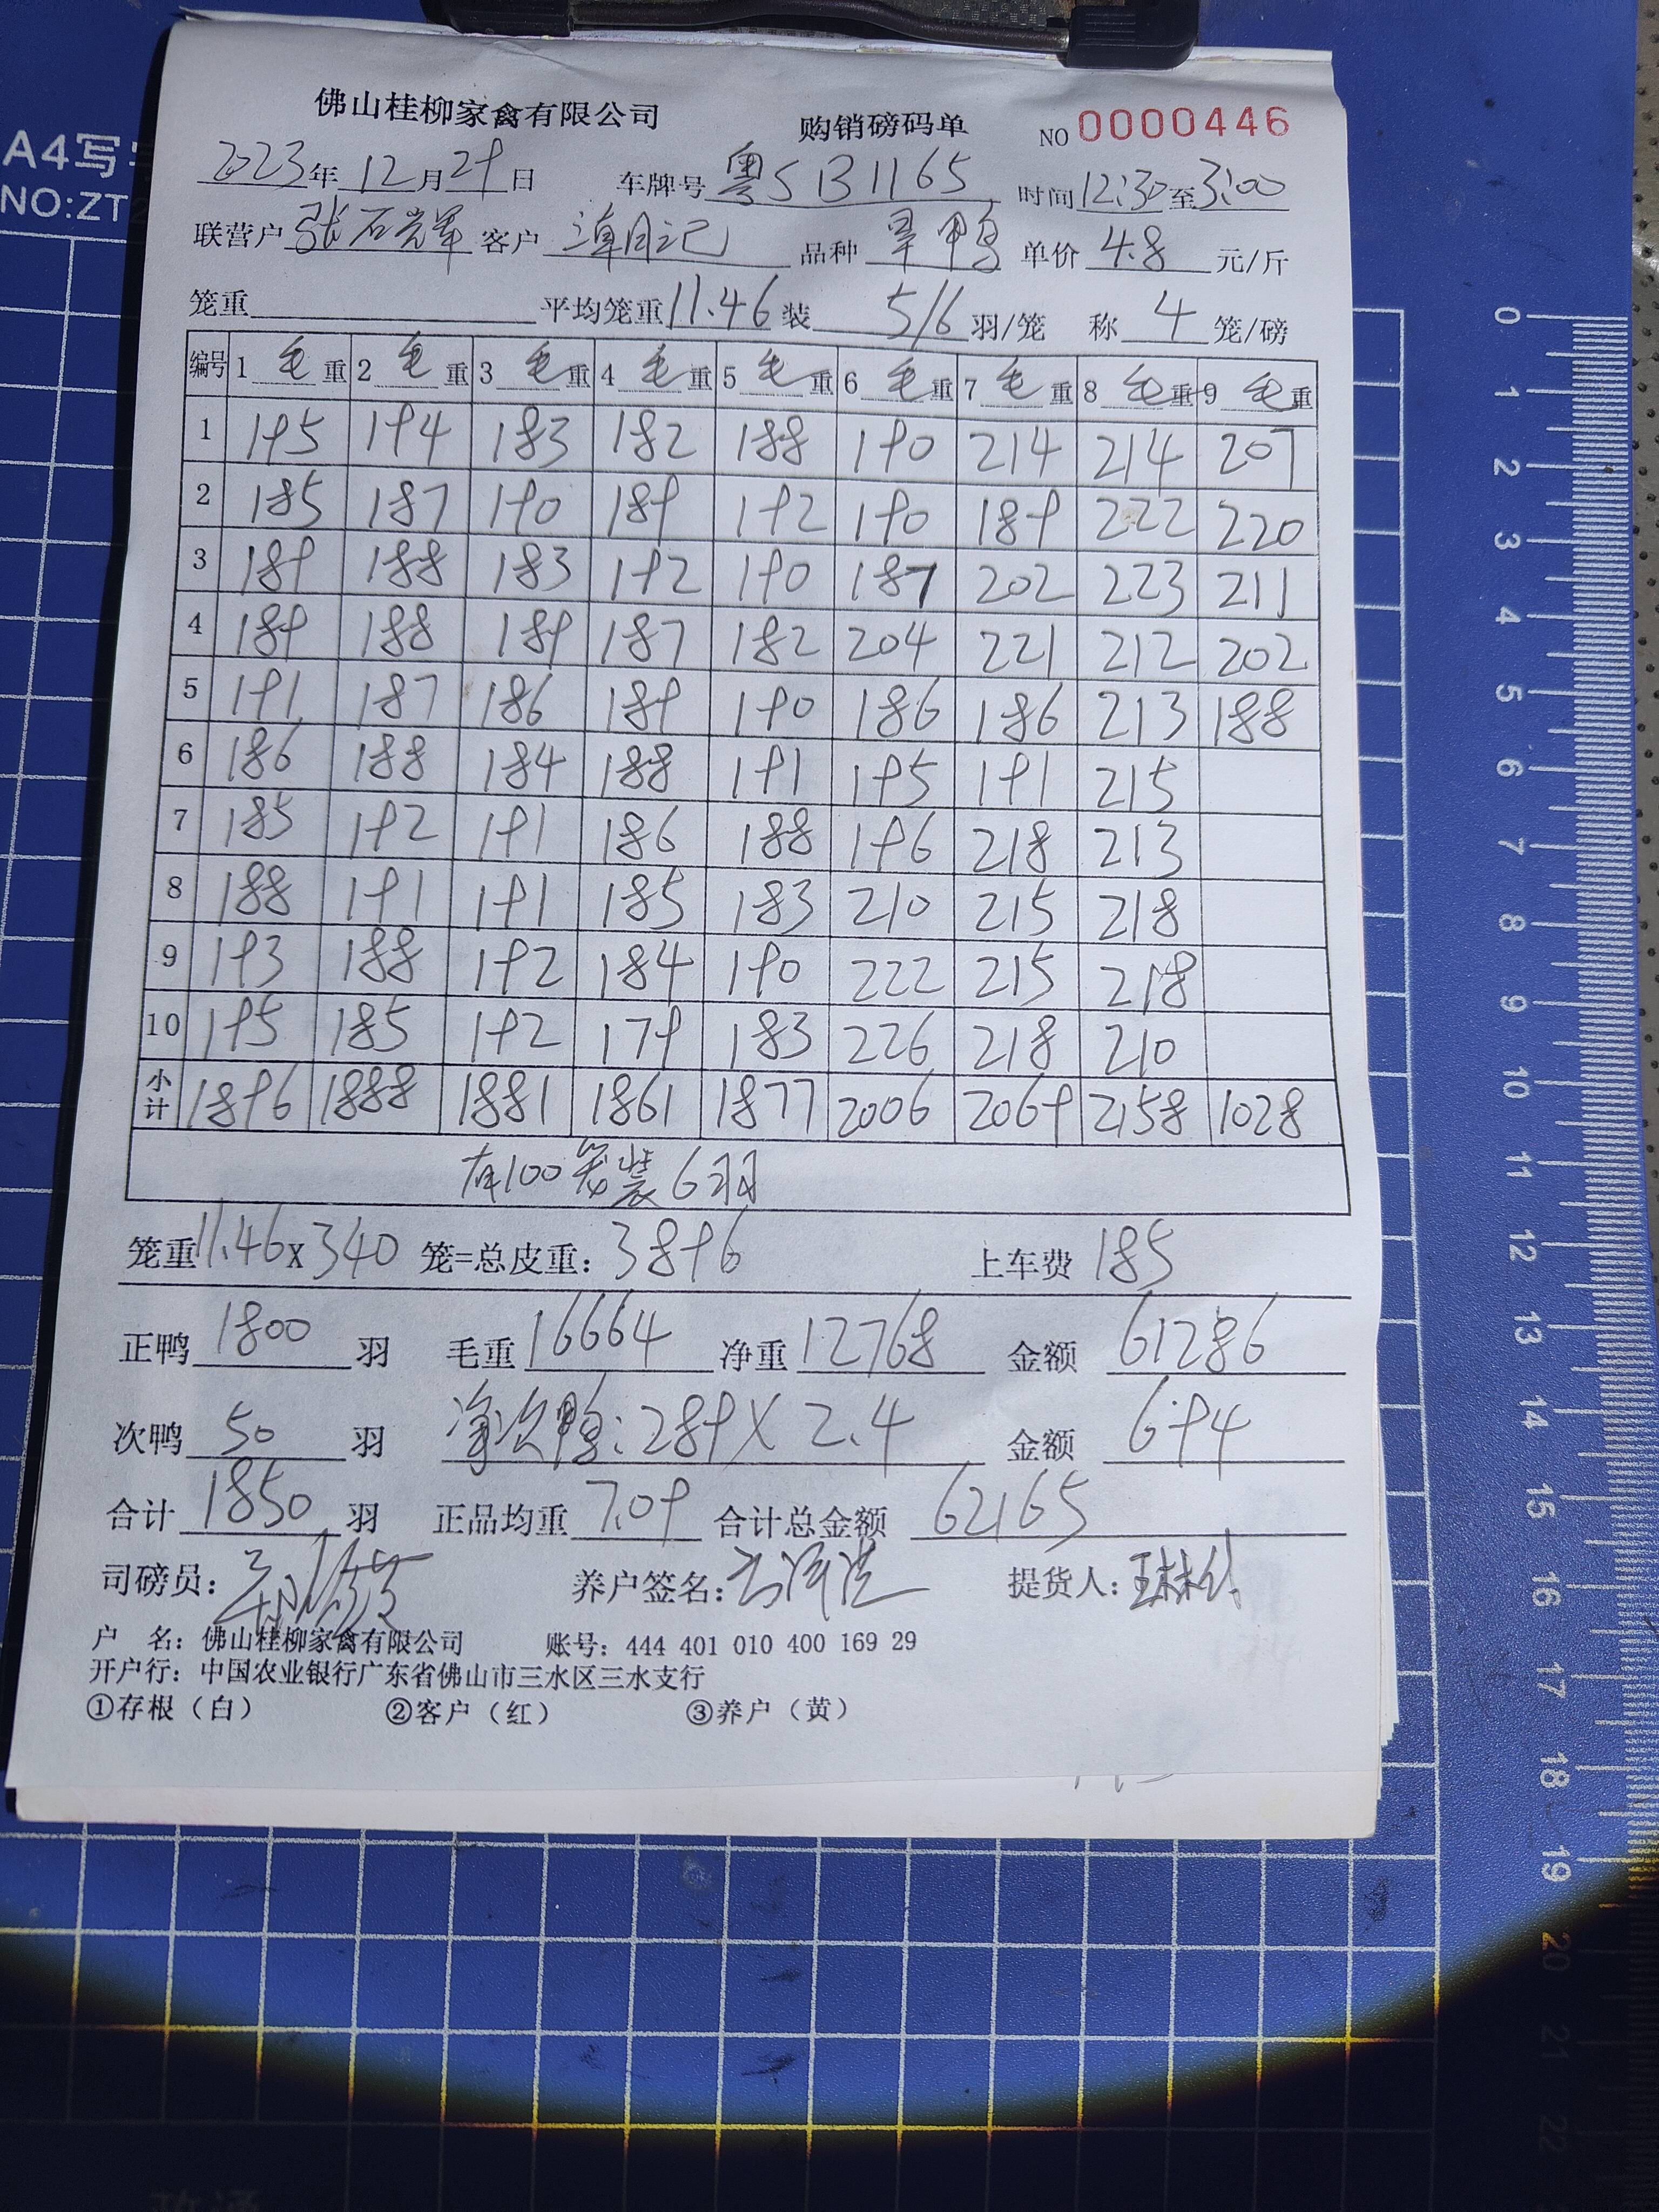 佛山桂柳家禽有限公司 购销磅码单 NO 0000446
2023年 12月 29日 车牌号 粤S B1165 时间 12:30 至 3:00
联营户 张石光军 客户 品种 旱鸭 单价 4.8 元/斤
笼重 平均笼重 11.46 装 5/6 羽/笼 称 4 笼/磅
编号 1 毛重 2 毛重 3 毛重 4 毛重 5 毛重 6 毛重 7 毛重 8 毛重 9 毛重
1 195 194 183 182 188 190 214 214 207
2 185 187 190 189 192 190 189 222 220
3 189 188 183 192 190 187 202 223 211
4 189 188 189 187 182 204 221 212 202
5 191 187 186 189 190 186 186 213 188
6 186 188 184 188 191 195 191 215
7 185 192 191 186 188 196 218 213
8 188 191 191 185 183 210 215 218
9 193 188 192 184 190 222 215 218
10 195 185 192 179 183 226 218 210
小计 1896 1888 1881 1861 1877 2006 2069 2158 1028
有100笼装6羽
笼重11.46x340 笼=总皮重: 3896 上车费 185
正鸭 1800 羽 毛重 16664 净重 12768 金额 61286
次鸭 50 羽 净次鸭:289X2.4 金额 694
合计 1850 羽 正品均重 7.09 合计总金额 62165
司磅员: 养户签名: 提货人:
户 名: 佛山桂柳家禽有限公司 账号: 444 401 010 400 169 29
开户行: 中国农业银行广东省佛山市三水区三水支行
①存根(白) ②客户(红) ③养户(黄)
A4写
NO:ZT
0
1
2
3
4
5
6
7
8
9
10
11
12
13
14
15
16
17
18
19
20
21
22